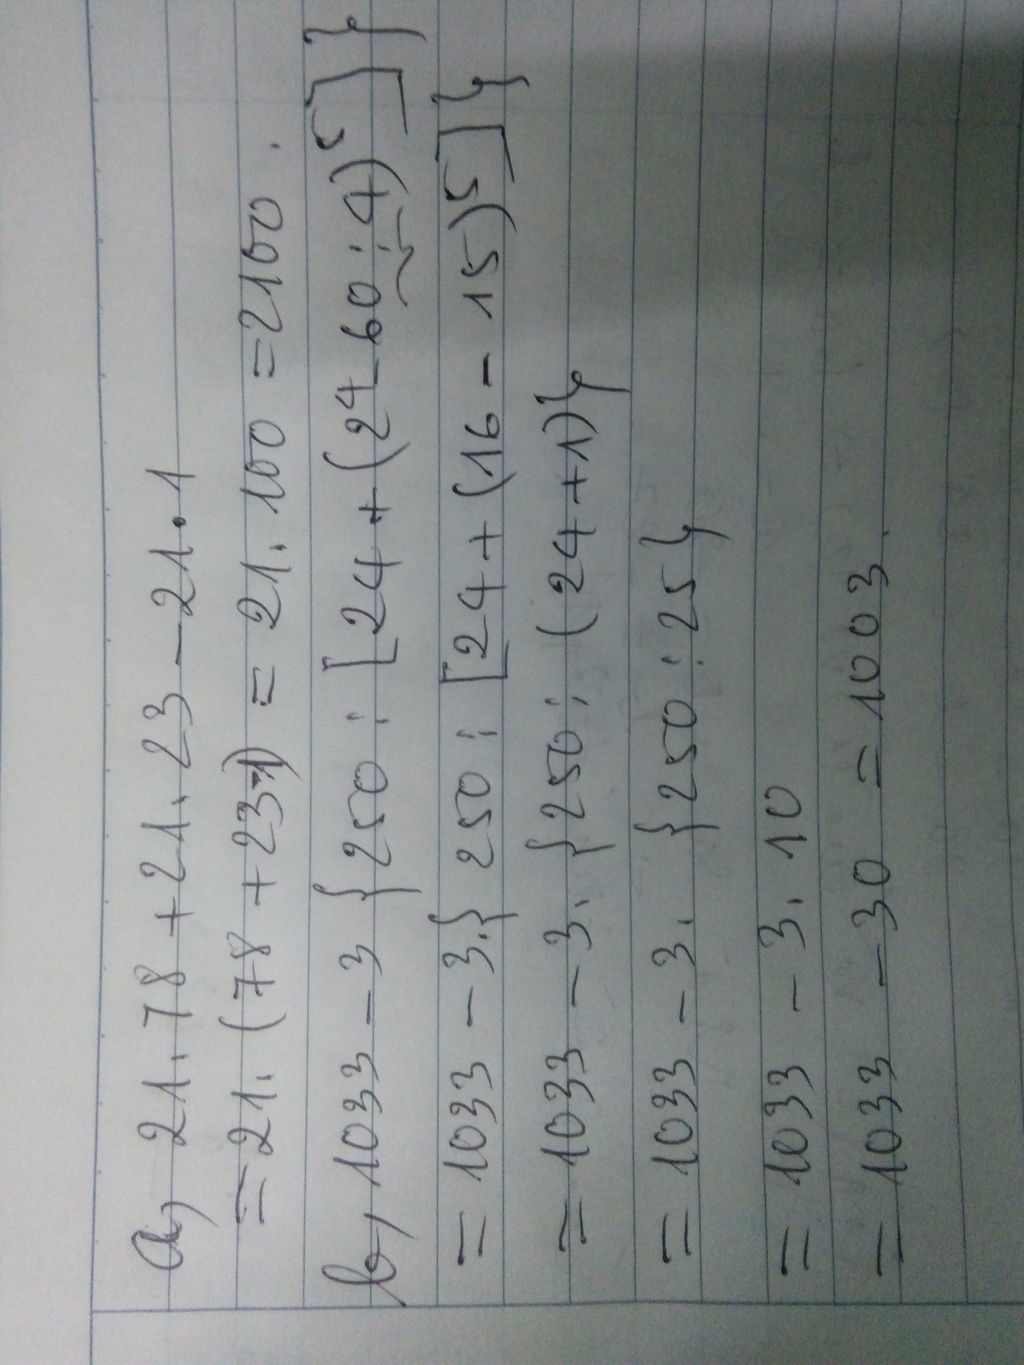 a, 21.78 + 21.23 - 21.1
= 21. (78 + 23-1) = 21.100 = 2100.
b, 1033 - 3 {250 : [24 + (2⁴ - 60 : 4)⁵]}
= 1033 - 3.{ 250 : [24 + (16 - 15)⁵]}
= 1033 - 3. {250 : (24 + 1)}
= 1033 - 3. {250 : 25}
= 1033 - 3. 10
= 1033 - 30 = 1003.